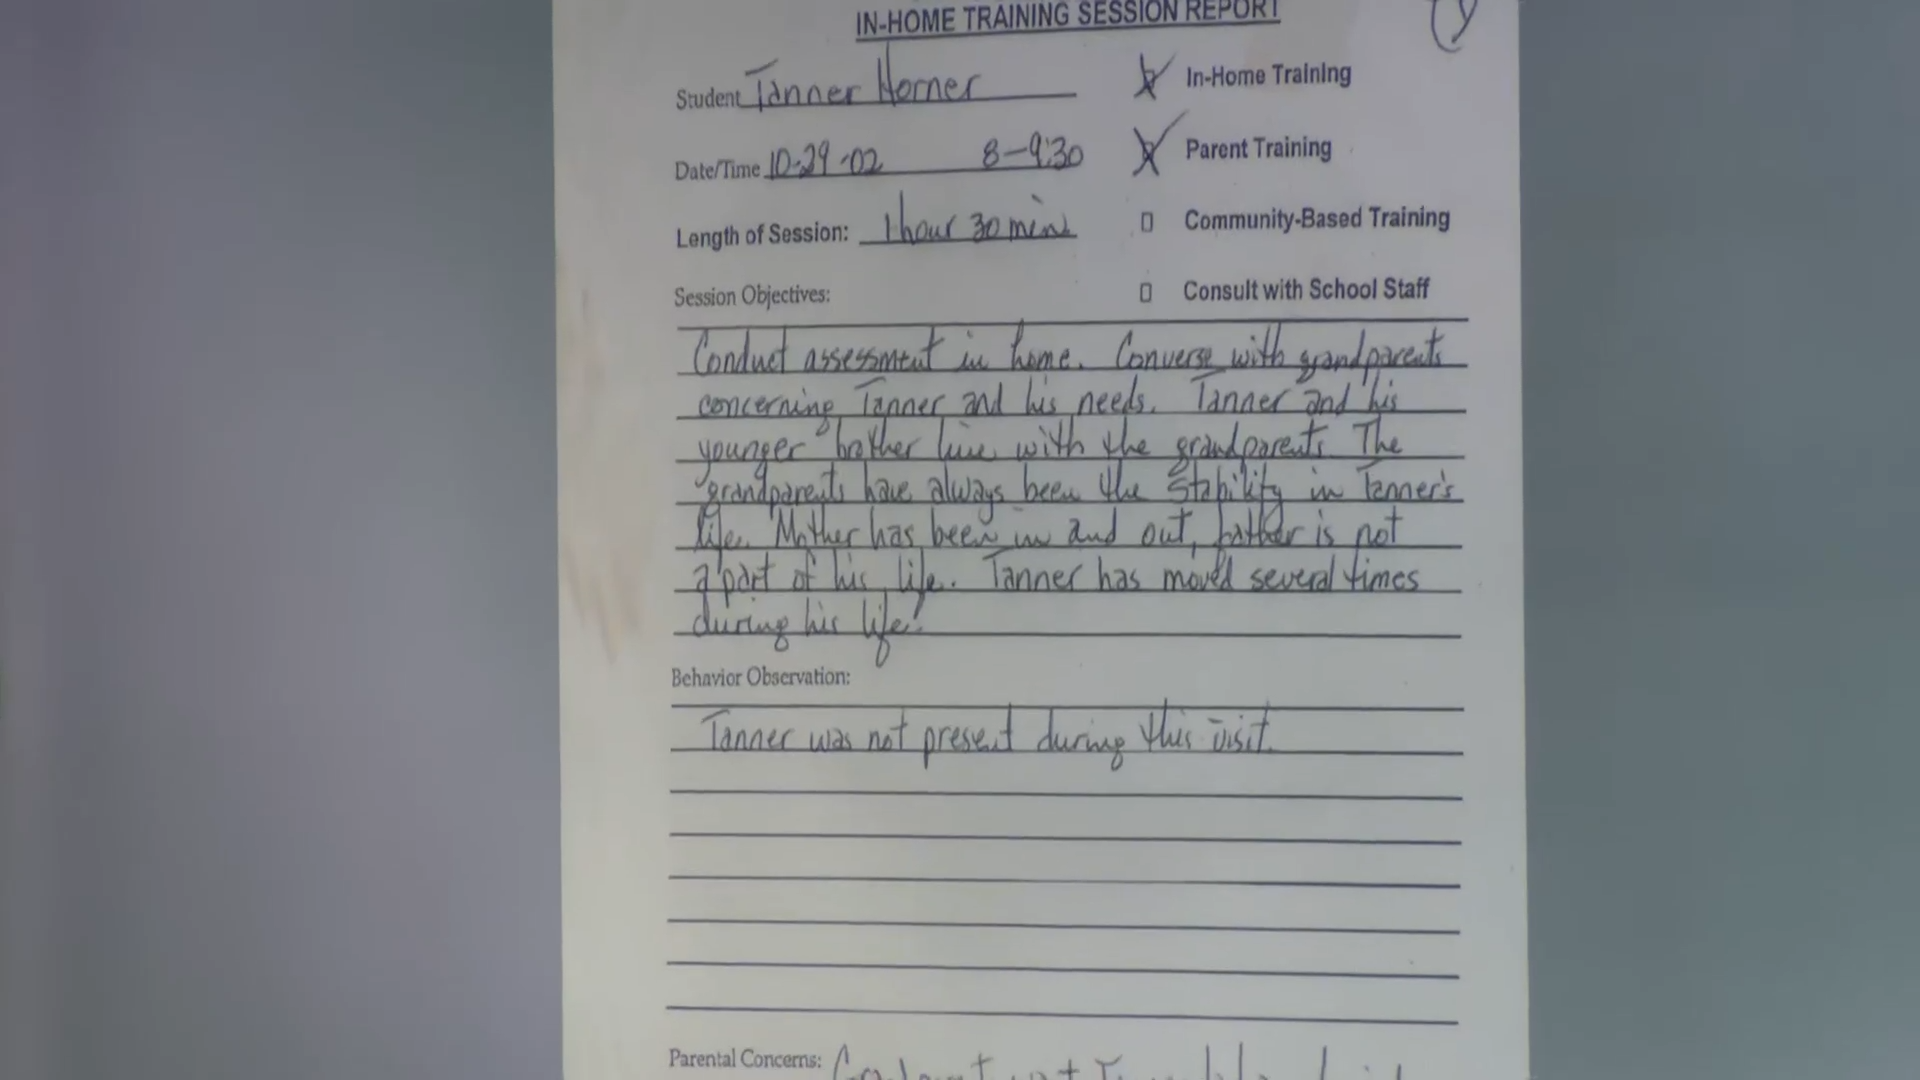 IN-HOME TRAINING SESSION REPORT
Student Tanner Horner
In-Home Training
Date/Time 10-29-02 8-9:30
Parent Training
Length of Session: 1 hour 30 mins
Community-Based Training
Session Objectives:
Consult with School Staff
Conduct assessment in home. Converse with grandparents
concerning Tanner and his needs. Tanner and his
younger brother live with the grandparents. The
grandparents have always been the stability in Tanner's
life. Mother has been in and out, father is not
a part of his life. Tanner has moved several times
during his life.
Behavior Observation:
Tanner was not present during this visit.
Parental Concerns: